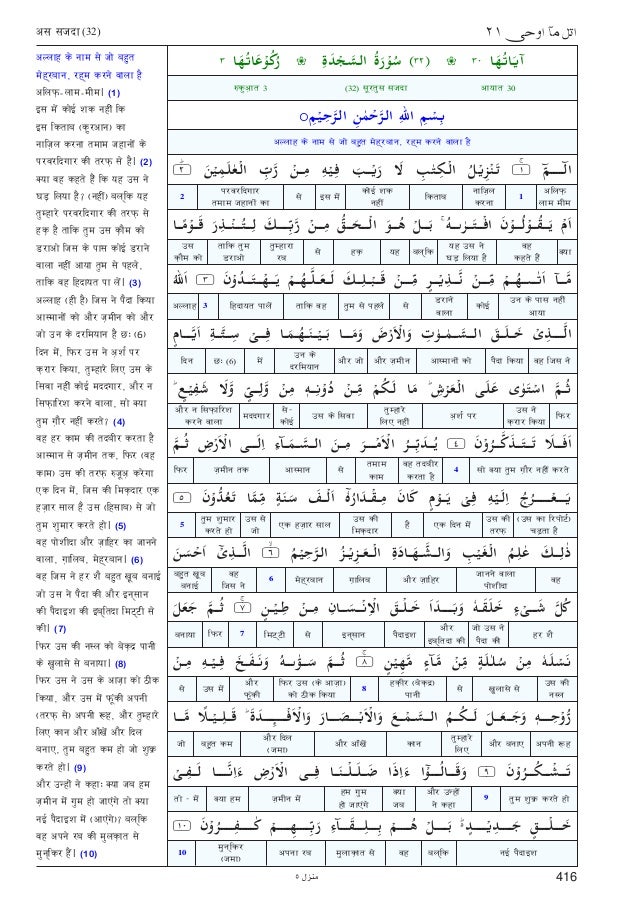 अस सजदा (32)
اتل مآ اوحی ۲۱
अल्लाह के नाम से जो बहुत
मेह्रबान, रह्म करने वाला है
अलिफ़-लाम-मीम। (1)
इस में कोई शक नहीं कि
इस किताब (कुरआन) का
नाज़िल करना तमाम जहानों के
परवरदिगार की तरफ़ से है। (2)
क्या वह कहते हैं कि यह उस ने
घड़ लिया है? (नहीं) बल्कि यह
तुम्हारे परवरदिगार की तरफ़ से
हक़ है ताकि तुम उस क़ौम को
डराओ जिस के पास कोई डराने
वाला नहीं आया तुम से पहले,
ताकि वह हिदायत पा लें। (3)
अल्लाह (ही है) जिस ने पैदा किया
आस्मानों को और ज़मीन को और
जो उन के दरमियान है छः (6)
दिन में, फिर उस ने अ़र्श पर
क़रार किया, तुम्हारे लिए उस के
सिवा नहीं कोई मददगार, और न
सिफ़ारिश करने वाला, सो क्या
तुम ग़ौर नहीं करते? (4)
वह हर काम की तदबीर करता है
आस्मान से ज़मीन तक, फिर (वह
काम) उस की तरफ़ रुजूअ़ करेगा
एक दिन में, जिस की मिक़दार एक
हज़ार साल है उस (हिसाब) से जो
तुम शुमार करते हो। (5)
वह पोशीदा और ज़ाहिर का जानने
वाला, ग़ालिब, मेह्रबान। (6)
वह जिस ने हर शै बहुत ख़ूब बनाई
जो उस ने पैदा की और इन्सान
की पैदाइश की इब्तिदा मिट्टी से
की। (7)
फिर उस की नस्ल को बेक़द्र पानी
के ख़ुलासे से बनाया। (8)
फिर उस ने उस के आज़ा को ठीक
किया, और उस में फूंकी अपनी
(तरफ़ से) अपनी रूह, और तुम्हारे
लिए कान और आँखें और दिल
बनाए, तुम बहुत कम हो जो शुक्र
करते हो। (9)
और उन्हों ने कहाः क्या जब हम
ज़मीन में गुम हो जाएंगे तो क्या
नई पैदाइश में (आएंगे)? बल्कि
वह अपने रब की मुलाक़ात से
मुन्किर हैं। (10)
اٰیَاتُهَا ۳۰ ❀ (۳۲) سُوْرَةُ السَّجْدَةِ ❀ رُكُوْعَاتُهَا ۳
आयात 30 (32) सूरतुस सजदा रुकुआ़त 3
بِسْمِ اللهِ الرَّحْمٰنِ الرَّحِيْمِ ○
अल्लाह के नाम से जो बहुत मेह्रबान, रह्म करने वाला है
الٓـمّٓ ۚ ۱ تَنْزِيْلُ الْكِتٰبِ لَا رَيْبَ فِيْهِ مِنْ رَّبِّ الْعٰلَمِيْنَ ؕ ۲
अलिफ़ लाम मीम 1 नाज़िल करना किताब कोई शक नहीं इस में से परवरदिगार तमाम जहानों का 2
اَمْ يَقُوْلُوْنَ افْتَرٰىهُ ۚ بَلْ هُوَ الْحَقُّ مِنْ رَّبِّكَ لِتُنْذِرَ قَوْمًا
क्या वह कहते हैं यह उस ने घड़ लिया है बल्कि यह हक़ से तुम्हारा रब ताकि तुम डराओ उस क़ौम को
مَّآ اَتٰىهُمْ مِّنْ نَّذِيْرٍ مِّنْ قَبْلِكَ لَعَلَّهُمْ يَهْتَدُوْنَ ۳ اَللهُ
उन के पास नहीं आया कोई डराने वाला से तुम से पहले ताकि वह हिदायत पालें 3 अल्लाह
الَّذِيْ خَلَقَ السَّمٰوٰتِ وَالْاَرْضَ وَمَا بَيْنَهُمَا فِيْ سِتَّةِ اَيَّامٍ
वह जिस ने पैदा किया आस्मानों को और ज़मीन और जो उन के दरमियान में छः (6) दिन
ثُمَّ اسْتَوٰى عَلَى الْعَرْشِ ؕ مَا لَكُمْ مِّنْ دُوْنِهٖ مِنْ وَّلِيٍّ وَّلَا شَفِيْعٍ ؕ
फिर उस ने क़रार किया अ़र्श पर तुम्हारे लिए नहीं उस के सिवा से-कोई मददगार और न सिफ़ारिश करने वाला
اَفَلَا تَتَذَكَّرُوْنَ ۴ يُدَبِّرُ الْاَمْرَ مِنَ السَّمَآءِ اِلَى الْاَرْضِ ثُمَّ
सो क्या तुम ग़ौर नहीं करते 4 वह तदबीर करता है तमाम काम से आस्मान ज़मीन तक फिर
يَعْرُجُ اِلَيْهِ فِيْ يَوْمٍ كَانَ مِقْدَارُهٗٓ اَلْفَ سَنَةٍ مِّمَّا تَعُدُّوْنَ ۵
(उस का रिपोर्ट) चढ़ता है उस की तरफ़ एक दिन में है उस की मिक़दार एक हज़ार साल उस से जो तुम शुमार करते हो 5
ذٰلِكَ عٰلِمُ الْغَيْبِ وَالشَّهَادَةِ الْعَزِيْزُ الرَّحِيْمُ ۙ ۶ الَّذِيْٓ اَحْسَنَ
वह जानने वाला पोशीदा और ज़ाहिर ग़ालिब मेह्रबान 6 वह जिस ने बहुत ख़ूब बनाई
كُلَّ شَيْءٍ خَلَقَهٗ وَبَدَاَ خَلْقَ الْاِنْسَانِ مِنْ طِيْنٍ ۚ ۷ ثُمَّ جَعَلَ
हर शै जो उस ने पैदा की और इब्तिदा की पैदाइश इन्सान से मिट्टी 7 फिर बनाया
نَسْلَهٗ مِنْ سُلٰلَةٍ مِّنْ مَّآءٍ مَّهِيْنٍ ۚ ۸ ثُمَّ سَوّٰىهُ وَنَفَخَ فِيْهِ مِنْ
उस की नस्ल ख़ुलासे से से हकीर (बेक़द्र) पानी 8 फिर उस (के आज़ा) को ठीक किया और फूंकी उस में से
رُّوْحِهٖ وَجَعَلَ لَكُمُ السَّمْعَ وَالْاَبْصَارَ وَالْاَفْـِٕدَةَ ؕ قَلِيْلًا مَّا
अपनी रूह और बनाए तुम्हारे लिए कान और आँखें और दिल (जमा) बहुत कम जो
تَشْكُرُوْنَ ۹ وَقَالُوْٓا ءَاِذَا ضَلَلْنَا فِي الْاَرْضِ ءَاِنَّا لَفِيْ
तुम शुक्र करते हो 9 और उन्हों ने कहा क्या जब हम गुम हो जाएंगे ज़मीन में क्या हम तो - में
خَلْقٍ جَدِيْدٍ ؕ بَلْ هُمْ بِلِقَآئِ رَبِّهِمْ كٰفِرُوْنَ ۱۰
नई पैदाइश बल्कि वह मुलाक़ात से अपना रब मुन्किर (जमा) 10
منزل ۵
416